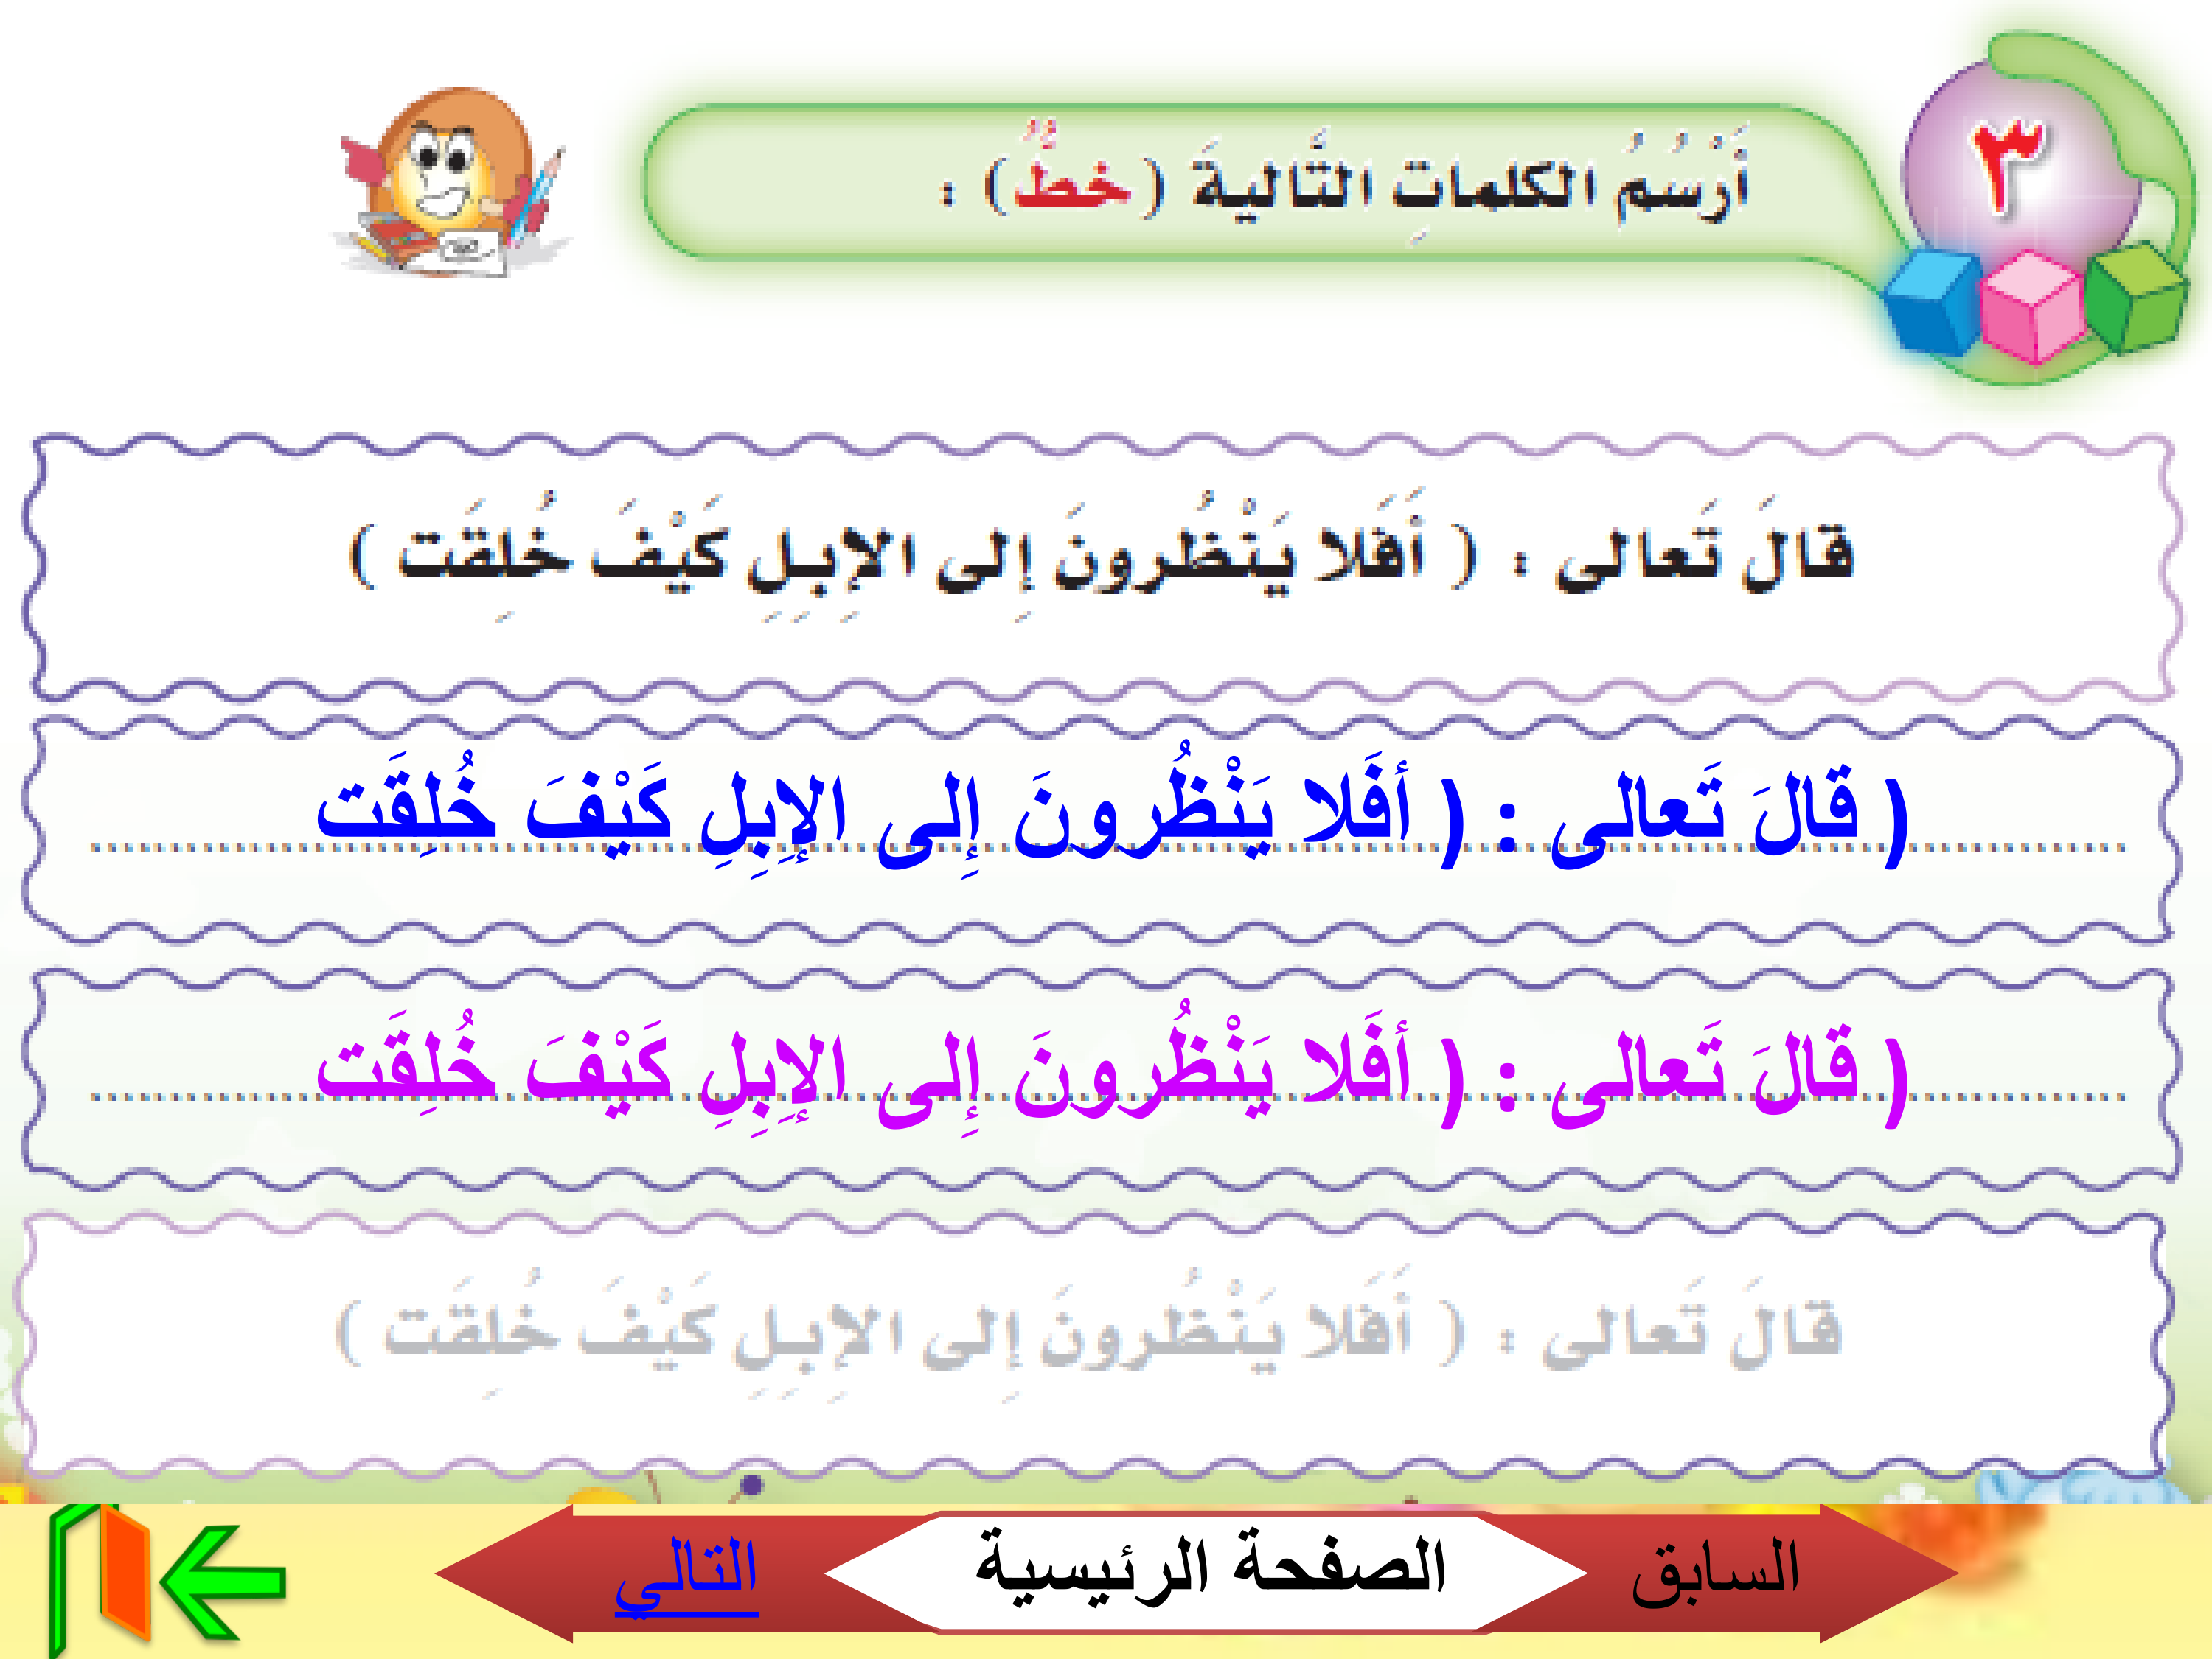 ٣
أَرْسُمُ الكلماتِ التَّاليةَ (خطٌّ) :
قالَ تَعالى : ( أَفَلا يَنْظُرونَ إِلى الإِبِلِ كَيْفَ خُلِقَت )
( قَالَ تَعالى : ( أفَلا يَنْظُرونَ إِلى الإِبِلِ كَيْفَ خُلِقَت
( قَالَ تَعالى : ( أفَلا يَنْظُرونَ إِلى الإِبِلِ كَيْفَ خُلِقَت
قالَ تَعالى : ( أَفَلا يَنْظُرونَ إِلى الإِبِلِ كَيْفَ خُلِقَت )
السابق الصفحة الرئيسية التالي